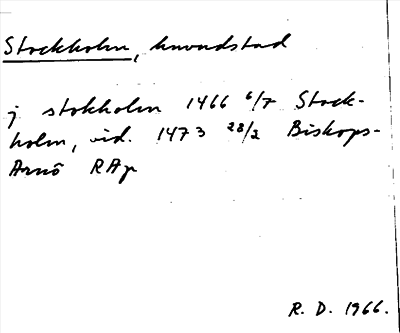 Stockholm, huvudstad
j stokholm 1466 6/7 Stock-
holm, vid. 1473 28/2 Biskops-
Arnö RAp
R. D. 1966.